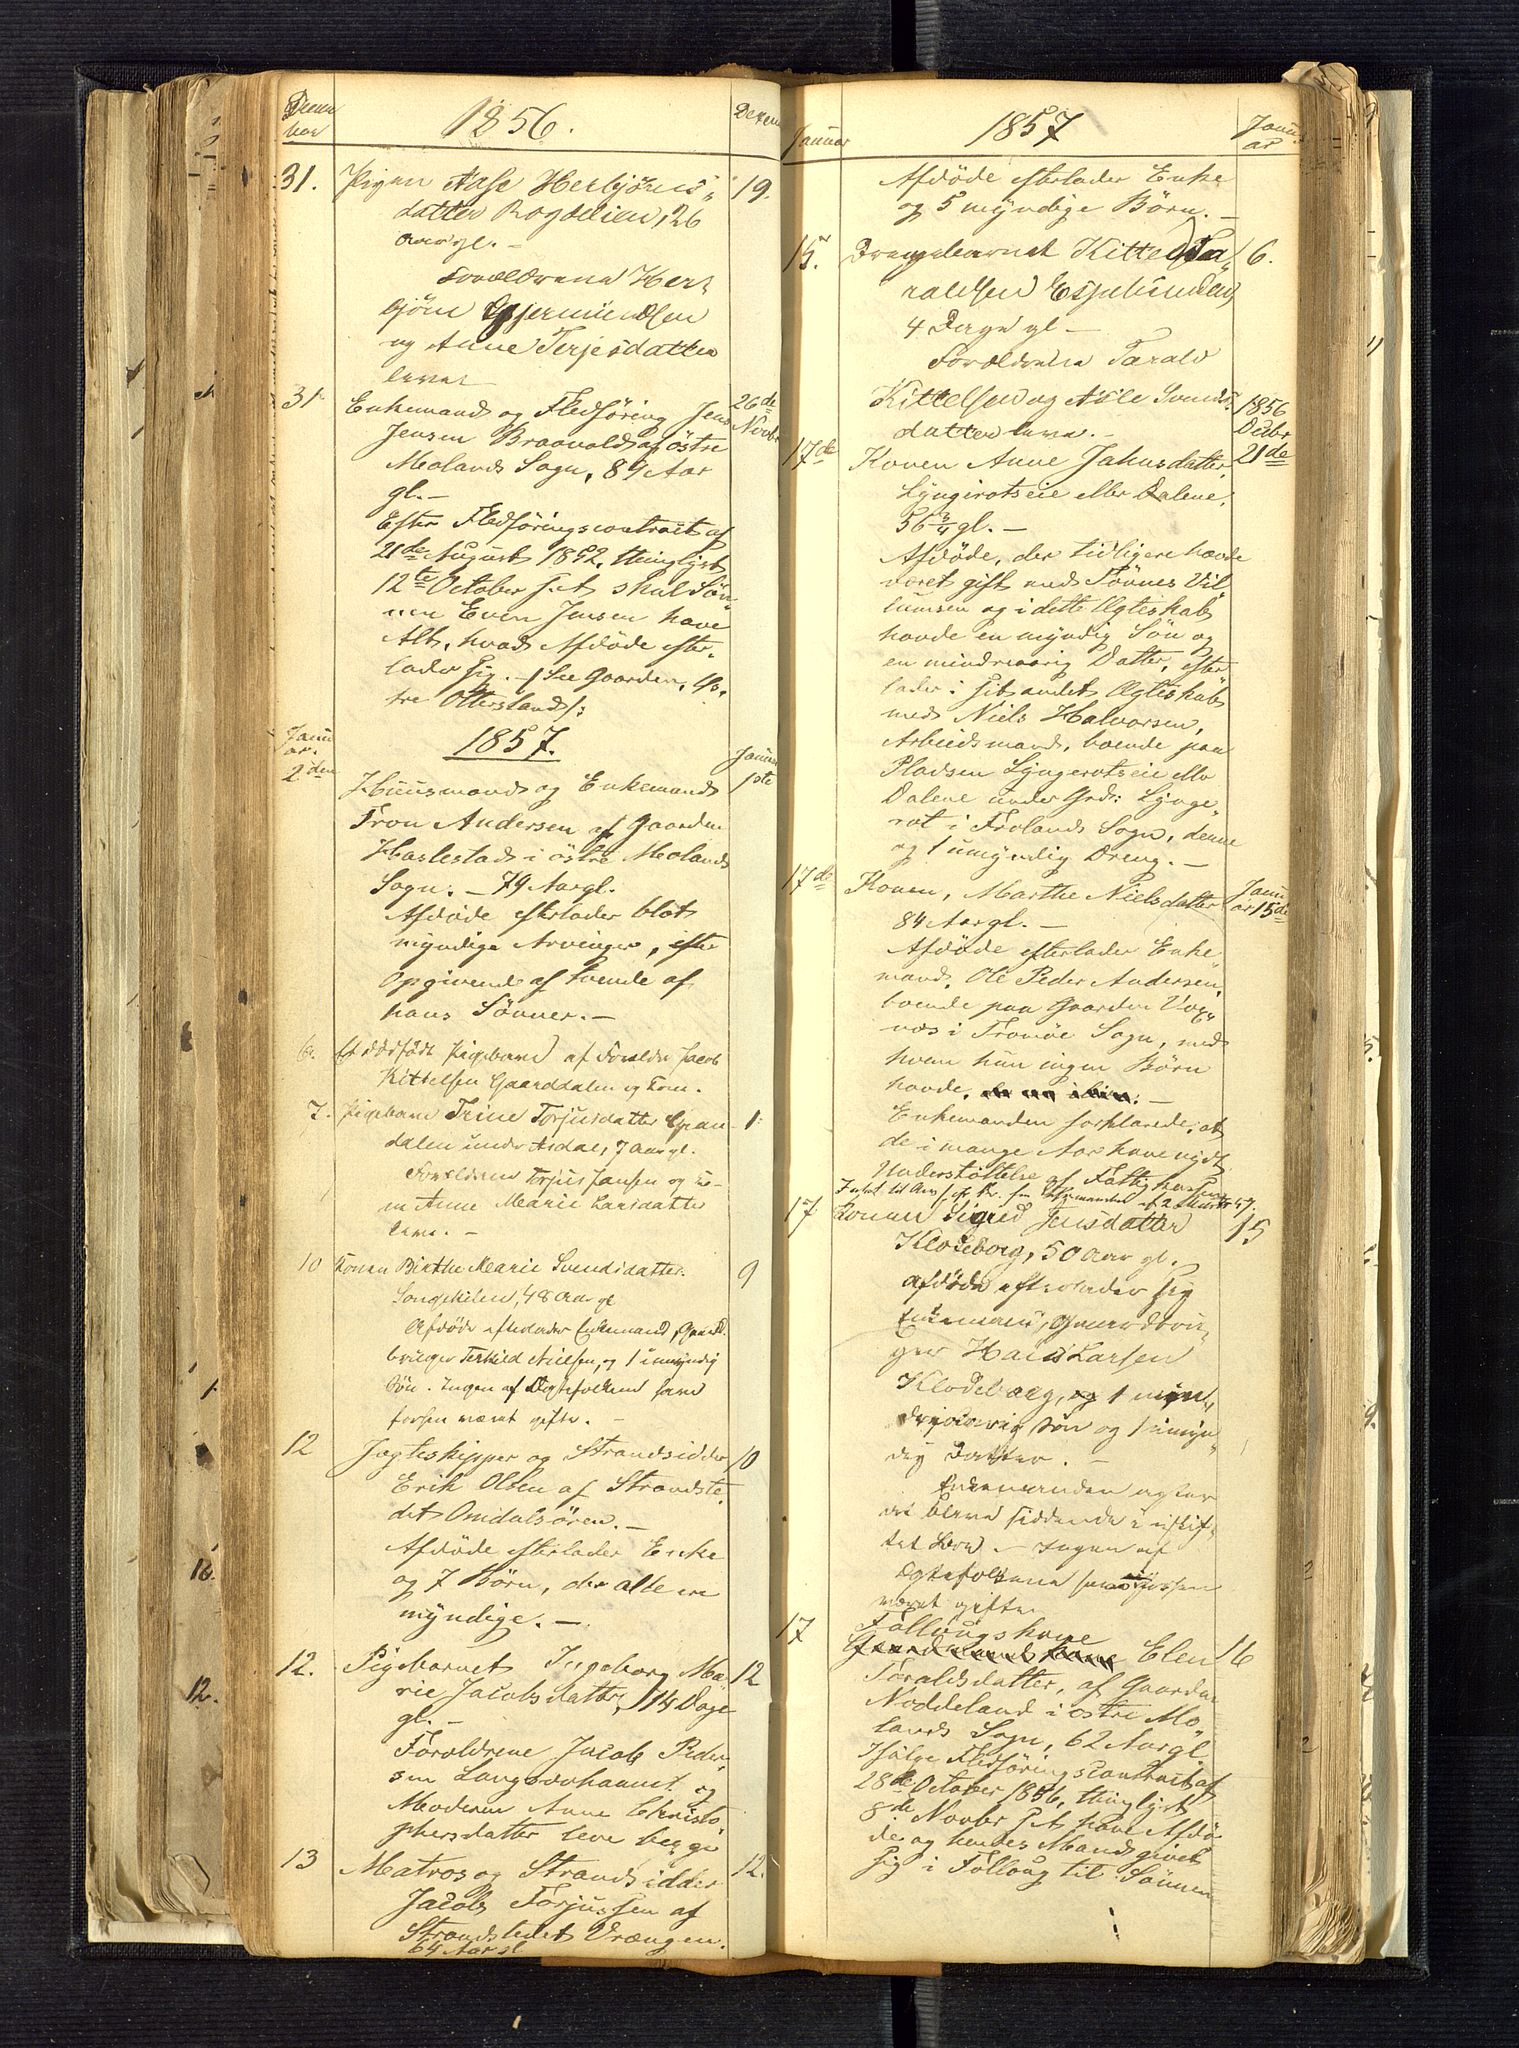 Decem
ber
1856.
Decem
31. Pigen Aase Herbjörns 19.
datter Bogdelien, 26
Aar gl. –
Forældrene Her
björn Gjermundsen
og Anne Terjesdatter
lever
31. Enkemand og Flædföring Jens 26de
Jensen Braavold af östre Novbr
Molands Sogn, 89 Aar
gl. –
Efter Flædföringscontract af
21de August 1852, thinglyst
12te October s. A. skal Søn
nen Even Jensen have
Alt, hvad Afdöde efter
lader sig. – /: See Gaarden,
tre Otterslands :/
1857.
Janu
ar.
2den
Januar
1ste
Huusmand og Enkemand
Tron Andersen af Gaarden
Haslestad i östre Molands
Sogn. – 79 Aar gl.
Afdöde efterlader blot
myndige Arvinger, efter
Opgivende af tvende af
hans Sönner. –
6. Et dödfödt Pigebarn af Forældre Jacob
Kittelsen Gaarddalen og Kone.
7. Pigebarn Trine Torjusdatter Gran 1.
dalen under Asdal, 7 Aar gl.
Forældrene Torjus Jansen og
Anne Marie Larsdatter
leve. –
10 Konen Birthe Marie Svendsdatter 9
Songekilen, 48 Aar gl
Afdöde efterlader Enkemand, Gaard
bruger Terkild Nielsen, og 1 umyndig
Sön. Ingen af Ægtefolkene have
forhen været gifte. –
12 Jagteskipper og Strandsidder 10
Erik Olsen af Strandste
det Omdalsören. –
Afdöde efterlader Enke
og 7 Börn, der alle ere
myndige. –
12. Pigebarnet Ingeborg Ma 12
rie Jacobsdatter, 14 Dage
gl. –
Forældrene Jacob Peder
sen Langsævhavnet og
Moderen Anne Christo
phersdatter leve begge
13 Matros og Strandsidder 12.
Jacob Torjussen af
Strandstedet Vrængen.
64 Aar gl
Januar
1857
Janu
ar
Afdöde efterlader Enke
og 5 myndige Börn. –
15. Drengebarnet Kittel Ta 6.
raldsen Espelund
4 Dage gl –
Forældrene Tarald
Kittelsen og Asle Svends
datter leve. –
1856
Decbr
17de Konen Anne Jahnsdatter 21de
Lyngrotseie eller Dalene,
56 3/4 gl. –
Afdöde, der tidligere havde
været gift med Tönnes Vil
lumsen og i dette Ægteskab
havde en myndig Sön og
en mindreaarig Datter, efter
lader i sit andet Ægteskab
med Niels Halvorsen,
Arbeidsmand, boende paa
Pladsen Lyngerotseie eller
Dalene under Grd: Lynge
rot i Frolands Sogn, denne
og 1 umyndig Dreng. –
17de Konen, Marthe Nielsdatter Janu
84 Aar gl. – ar 15de
Afdöde efterlader Enke
mand, Ole Peder Andersen,
boende paa Gaarden Vox
næs i Tromöe Sogn, med
hvem hun ingen Börn
havde. –
Enkemanden forklarede, at
de i mange Aar have nydt
Understöttelse af Fattigkassen
17 Konen Sigrid Jensdatter 15
Klodeborg, 50 Aar gl.
Afdöde efterlader sig
Enkemand, Gaardbru
ger Hans Larsen
Klodeborg, og 1 min
dreaarig Sön og 1 umyn
dig Datter. –
Enkemanden agter
at blive siddende i uskif
tet Boe. – Ingen af
Ægtefolkene have forhen
været gifte.
17 Föllougskone
Elen 16
Taraldsdatter, af Gaarden
Noddeland i östre Mo
lands Sogn, 62 Aar gl.
Ifölge Flædföringscontract af
28de October 1856, thinglyst
8de Novbr s. A. have Afdö
de og hendes Mand givet
sig i Fölloug til Sönnen